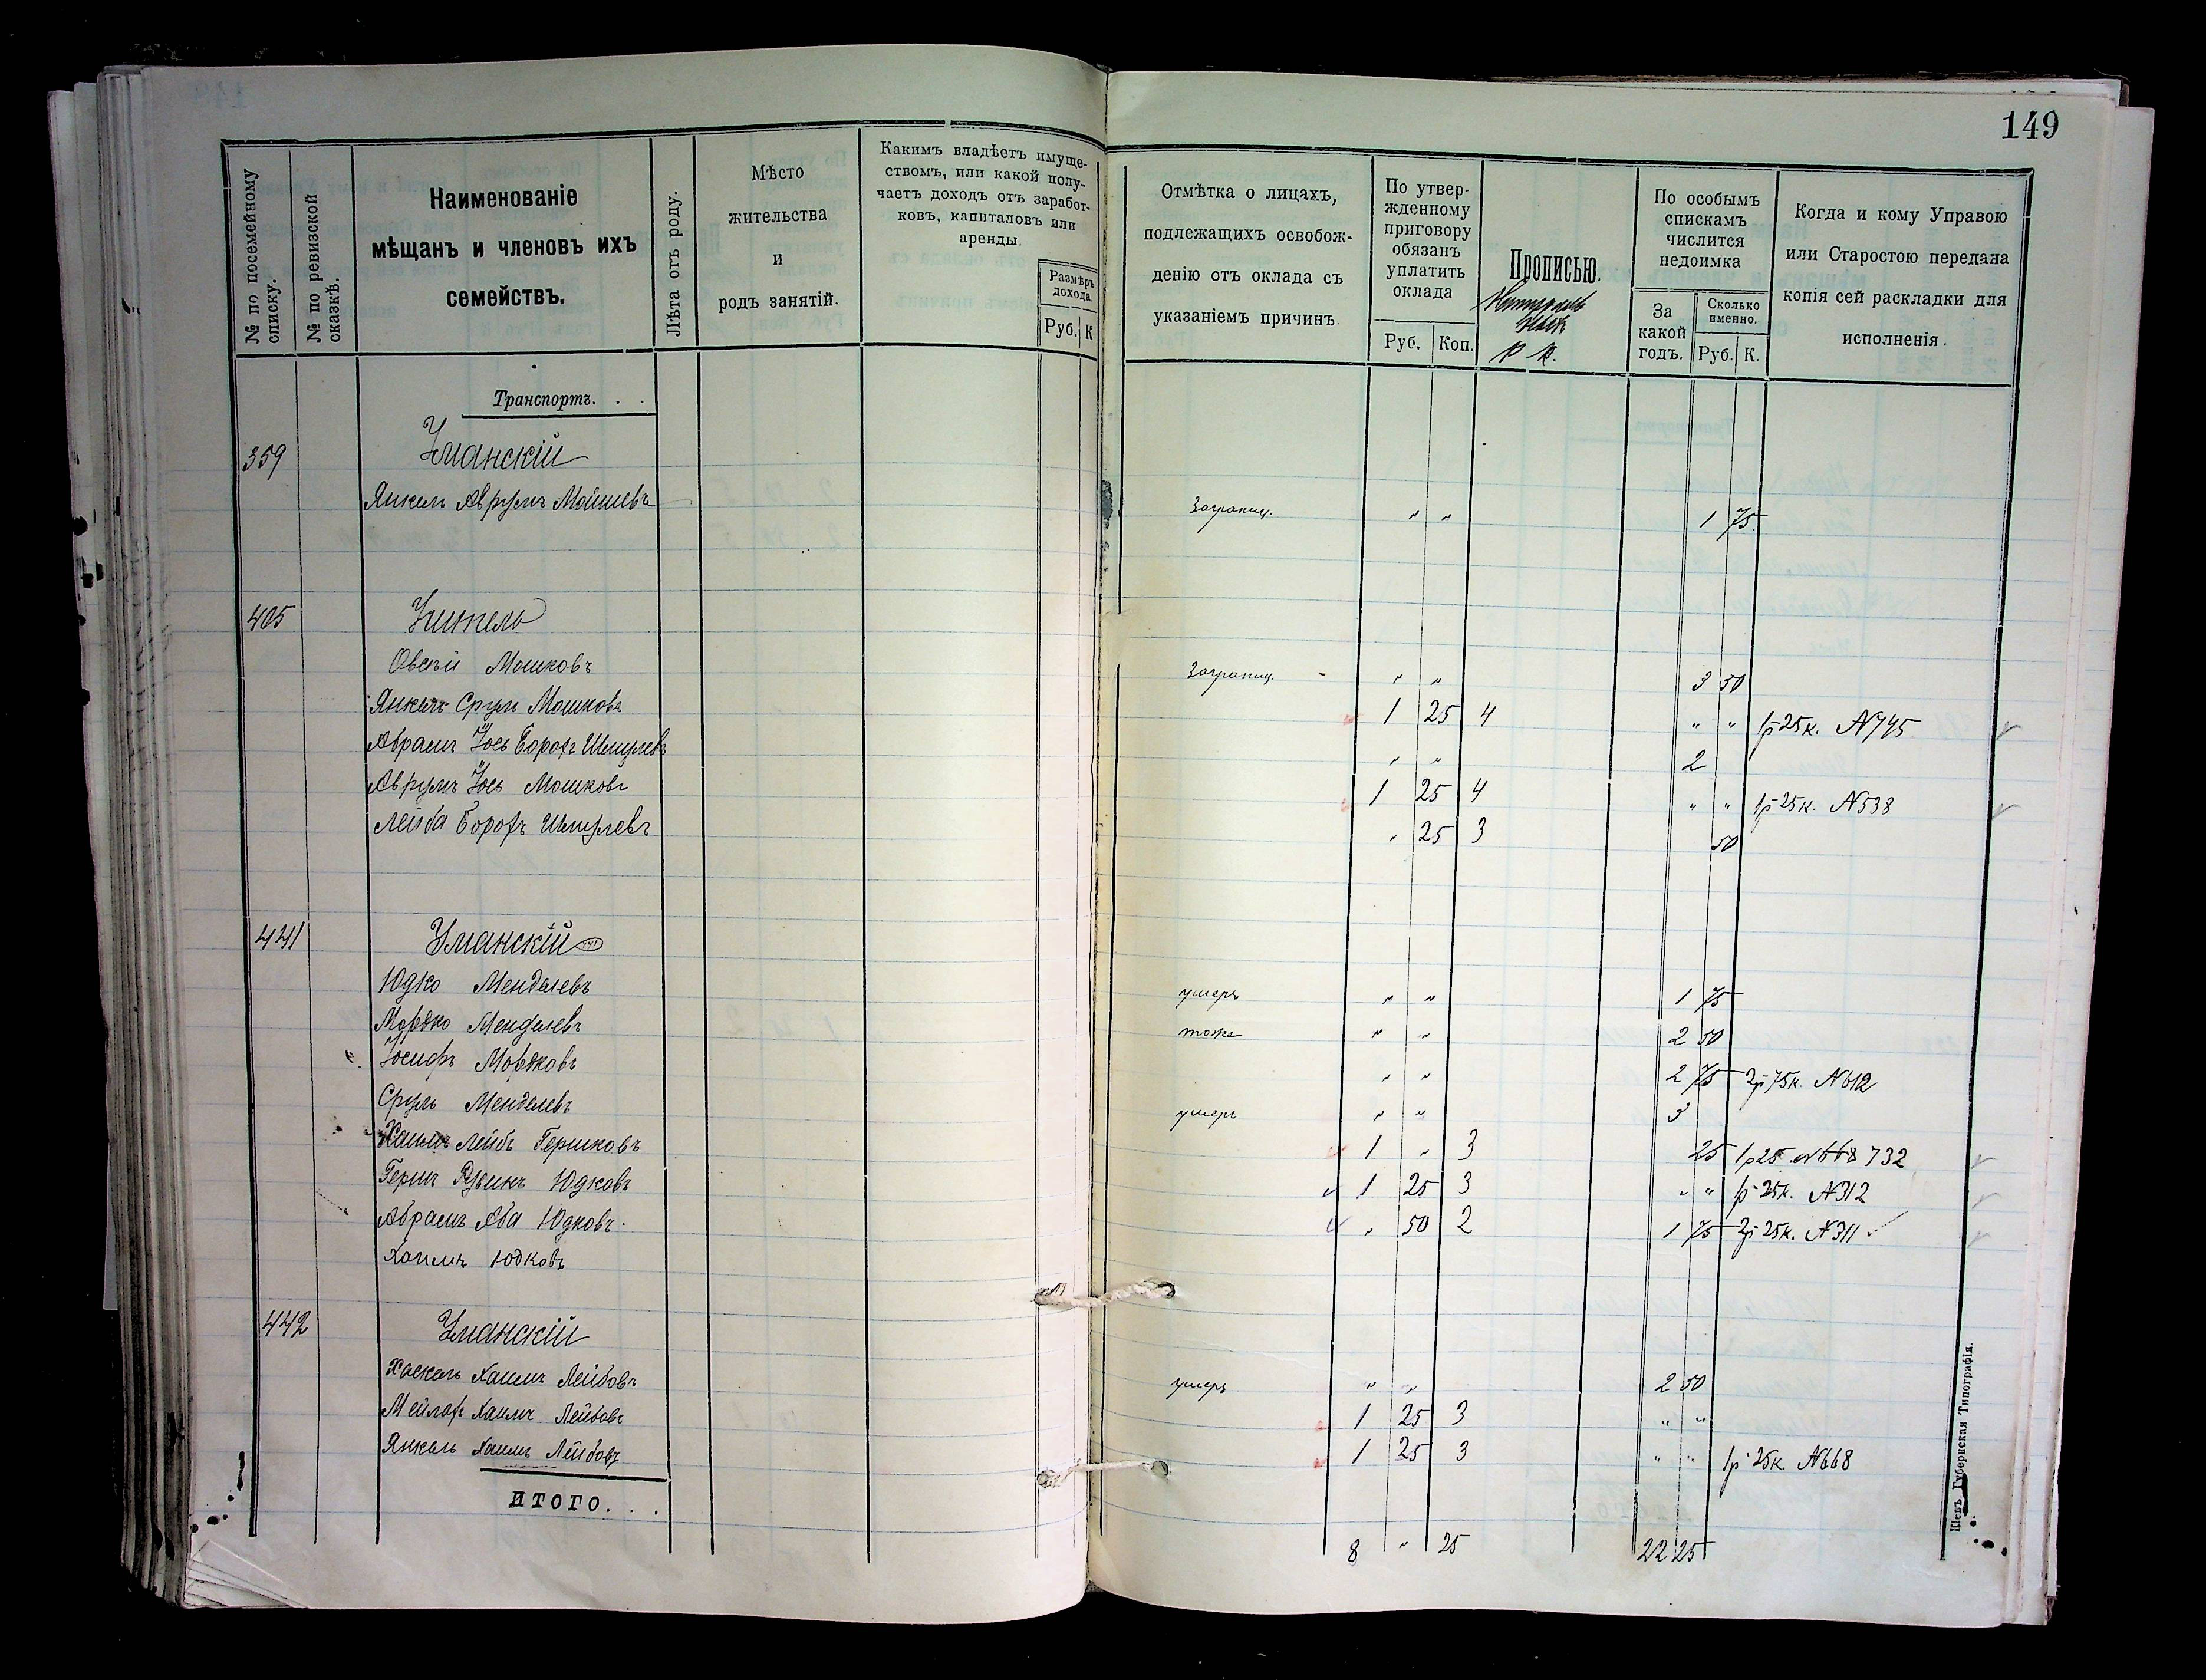 149
№ по посемейному списку.
№ по ревизской сказкѣ.
Наименованіе
мѣщанъ и членовъ ихъ
семействъ.
Лѣта отъ роду.
Мѣсто
жительства
и
родъ занятій.
Какимъ владѣетъ имуще-
ствомъ, или какой полу-
чаетъ доходъ отъ заработ-
ковъ, капиталовъ или
аренды.
Размѣръ
дохода.
Руб. К
Отмѣтка о лицахъ,
подлежащихъ освобож-
денію отъ оклада съ
указаніемъ причинъ.
По утвер-
жденному
приговору
обязанъ
уплатить
оклада
Руб. Коп.
Прописью.
р к.
По особымъ
спискамъ
числится
недоимка
За
какой
годъ.
Сколько
именно.
Руб. К.
Когда и кому Управою
или Старостою передана
копія сей раскладки для
исполненія.
Транспортъ. . .
359 Уманскій
Янкель Аврумъ Мошиевъ Заграниц. " " 1 75
405 Учитель
Овсѣй Мошковъ Заграниц. - " " 3 50
Янкель Сруль Мошковъ 1 25 4 " " 1р 25к. N 745
Аврамъ Іось Борохъ Шмулевъ " " 2
Аврумъ Іось Мошковъ 1 25 4 " " 1р 25к. N 538
Лейба Борохъ Шмулевъ " 25 3 50
441 Уманскій
Юдко Менделевъ умеръ " " 1 75
Мордко Менделевъ тоже " " 2 50
Іосифъ Мордковъ " " 2 75 2р 75к. N 612
Сруль Менделевъ умеръ " " 3
Хаимъ Лейбъ Гершковъ 1 " 3 25 1р 25 N 668 732
Гершъ Рувинъ Юдковъ 1 25 3 " " 1р 25к. N 312
Аврамъ Аба Юдковъ. " 50 2 1 75 2р 25к. N 311
Хаимъ Юдковъ
442 Уманскій
Хаскель Хаимъ Лейбовъ умеръ " " 2 50
Мейлах Хаимъ Лейбовъ 1 25 3 " "
Янкель Хаимъ Лейбовъ 1 25 3 " " 1р 25к. N 668
ИТОГО. . .
8 " 25 22 25
Кіевъ Губернская Типографія.